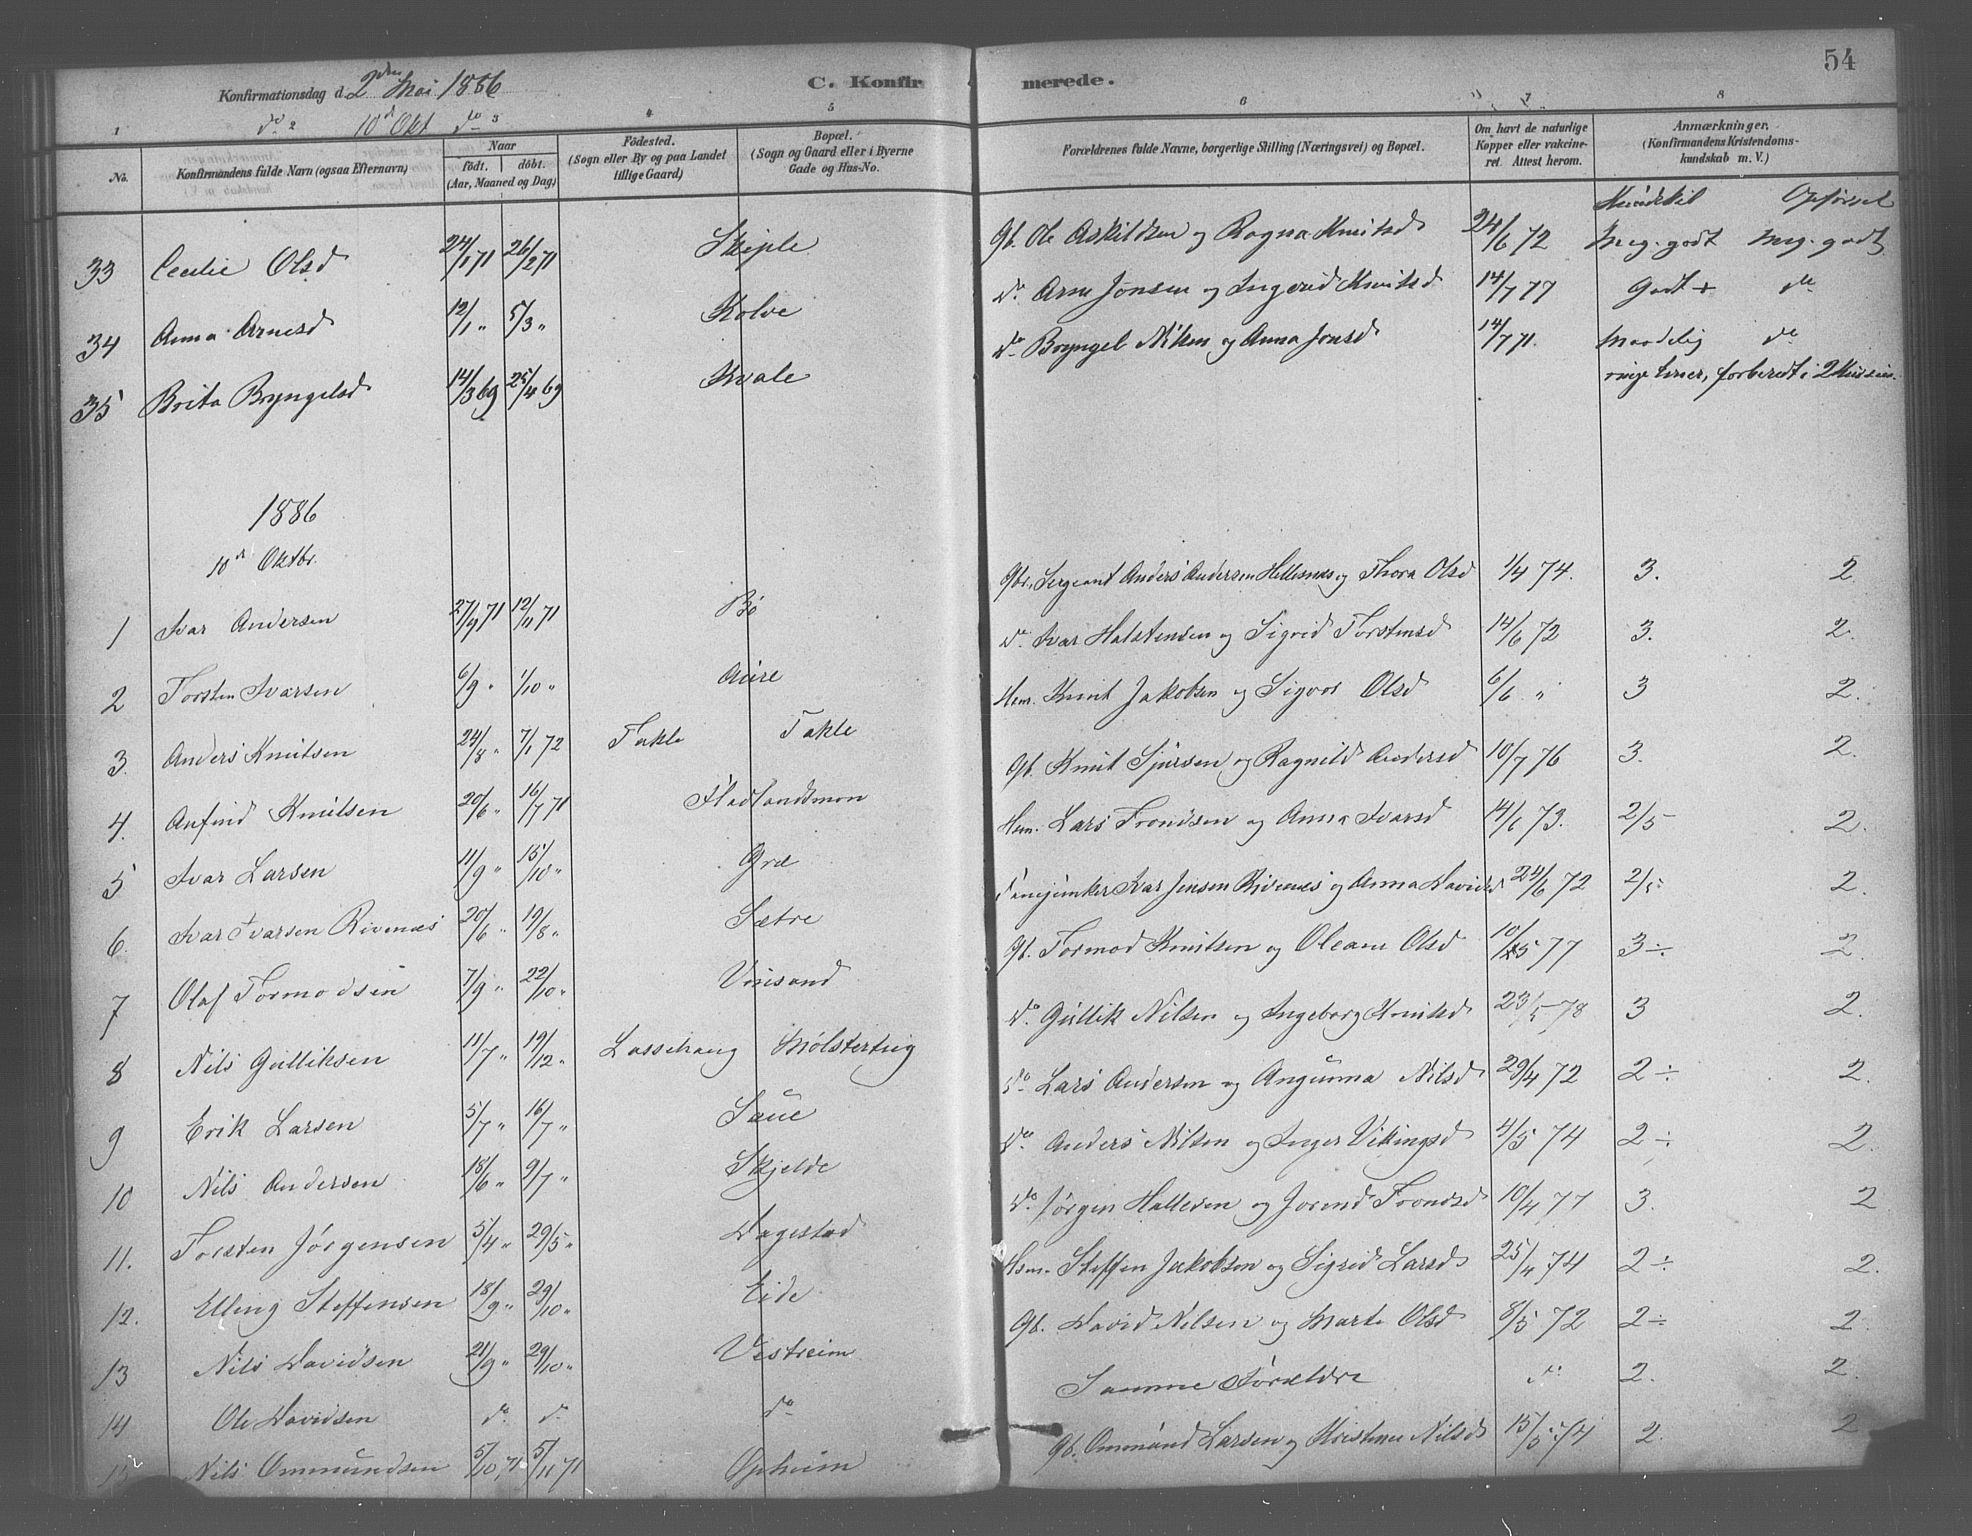 54
Konfirmationsdag d. 2den Mai 1886
C. Konfirmerede.
do 10de Okt do
1 2 3 4 5 6 7 8
No.
Konfirmandens fulde Navn (ogsaa Efternavn)
Naar
födt. döbt.
(Aar, Maaned og Dag)
Födested.
(Sogn eller By og paa Landet tillige Gaard)
Bopæl.
(Sogn og Gaard eller i Byerne Gade og Hus-No.
Forældrenes fulde Navne, borgerlige Stilling (Næringsvei) og Bopæl.
Om havt de naturlige Kopper eller vaccineret. Attest herom.
Anmærkninger.
(Konfirmandens Kristendomskundskab m. V.)
Kundskb Opförsel
33 Cecilie Olsd 24/1 71 26/2 71 Gb. Ole Askildsen og Ragna Knutsd 24/6 72 Meg. godt meg. godt
34 Anna Arnesd 12/1 " 5/3 " Kolve do Arne Jonsen og Ingerid Knutsd 14/7 77 Godt + do
35 Brita Bryngelsd 14/3 69 25/4 69 Kvale do Bryngel Nilsen og Anna Jonsd 14/7 71. maadelig do
forberedt i 2
1886
10de Oktbr.
1 Ivar Andersen 27/9 71 12/11 71 Bö Gbr. Sergeant Anders Andersen Hellesnes og Thora Olsd 1/4 74. 3. 2
2 Torsten Ivarsen 6/9 " 1/10 " do Ivar Halstensen og Sigrid Torstensd 14/6 72 3. 2.
3. Anders Knutsen 24/8 " 7/1 72 Takle Takle Hsm. Knut Jakobsen og Sigvor Olsd 6/6 " 3 2.
4. Anfind Knutsen 20/6 " 16/7 71 Flatlandsmon Gb. Knut Sjursen og Ragnild Andersd 10/7 76 3. 2.
5 Ivar Larsen 11/9 " 15/10 " Græ Hsm. Lars Trondsen og Anna Ivarsd 14/6 73. 2/5 2.
6. Ivar Ivarsen Rivenæs 20/6 " 19/8 " Sætre Ivar Jensen Rivenæs og Anna Davidsd 24/6 72 2/5 2.
7 Olaf Tormodsen 7/9 " 22/10 " Vinsand Gb. Tormod Knutsen og Oleane Olsd 10/5 77 3 ÷ 2.
8 Nils Gulliksen 11/7 " 19/12 " Lassehaug Mölsterteig do Gullik Nilsen og Ingeborg Knutsd 23/5 78 3 2.
9 Erik Larsen 5/7 " 16/7 " Saue do Lars Andersen og Angunna Nilsd 29/4 72 2 ÷ 2.
10 Nils Andersen 18/6 " 9/7 " Skjelde do Anders Nilsen og Inger Vikingsd 4/5 74 2 ÷ 2.
11. Torsten Jörgensen 5/4 " 29/5 " Dagestad do Jörgen Hallesen og Jorend Trondsd 10/4 77 3. 2
12. Elling Steffensen 18/9 " 29/10 " Eide Hsm. Steffen Jakobsen og Sigrid Larsd 25/4 74 2 ÷ 2.
13 Nils Davidsen 21/9 " 29/10 " Vestreim Gb. David Nilsen og Marte Olsd 8/5 72 2 ÷ 2.
14 Ole Davidsen do do do Samme Forældre do 2. 2.
15 Nils Ommundsen 5/10 71 5/11 71 Opheim Gb. Ommund Larsen og Kristine Nilsd 15/5 74 2. 2